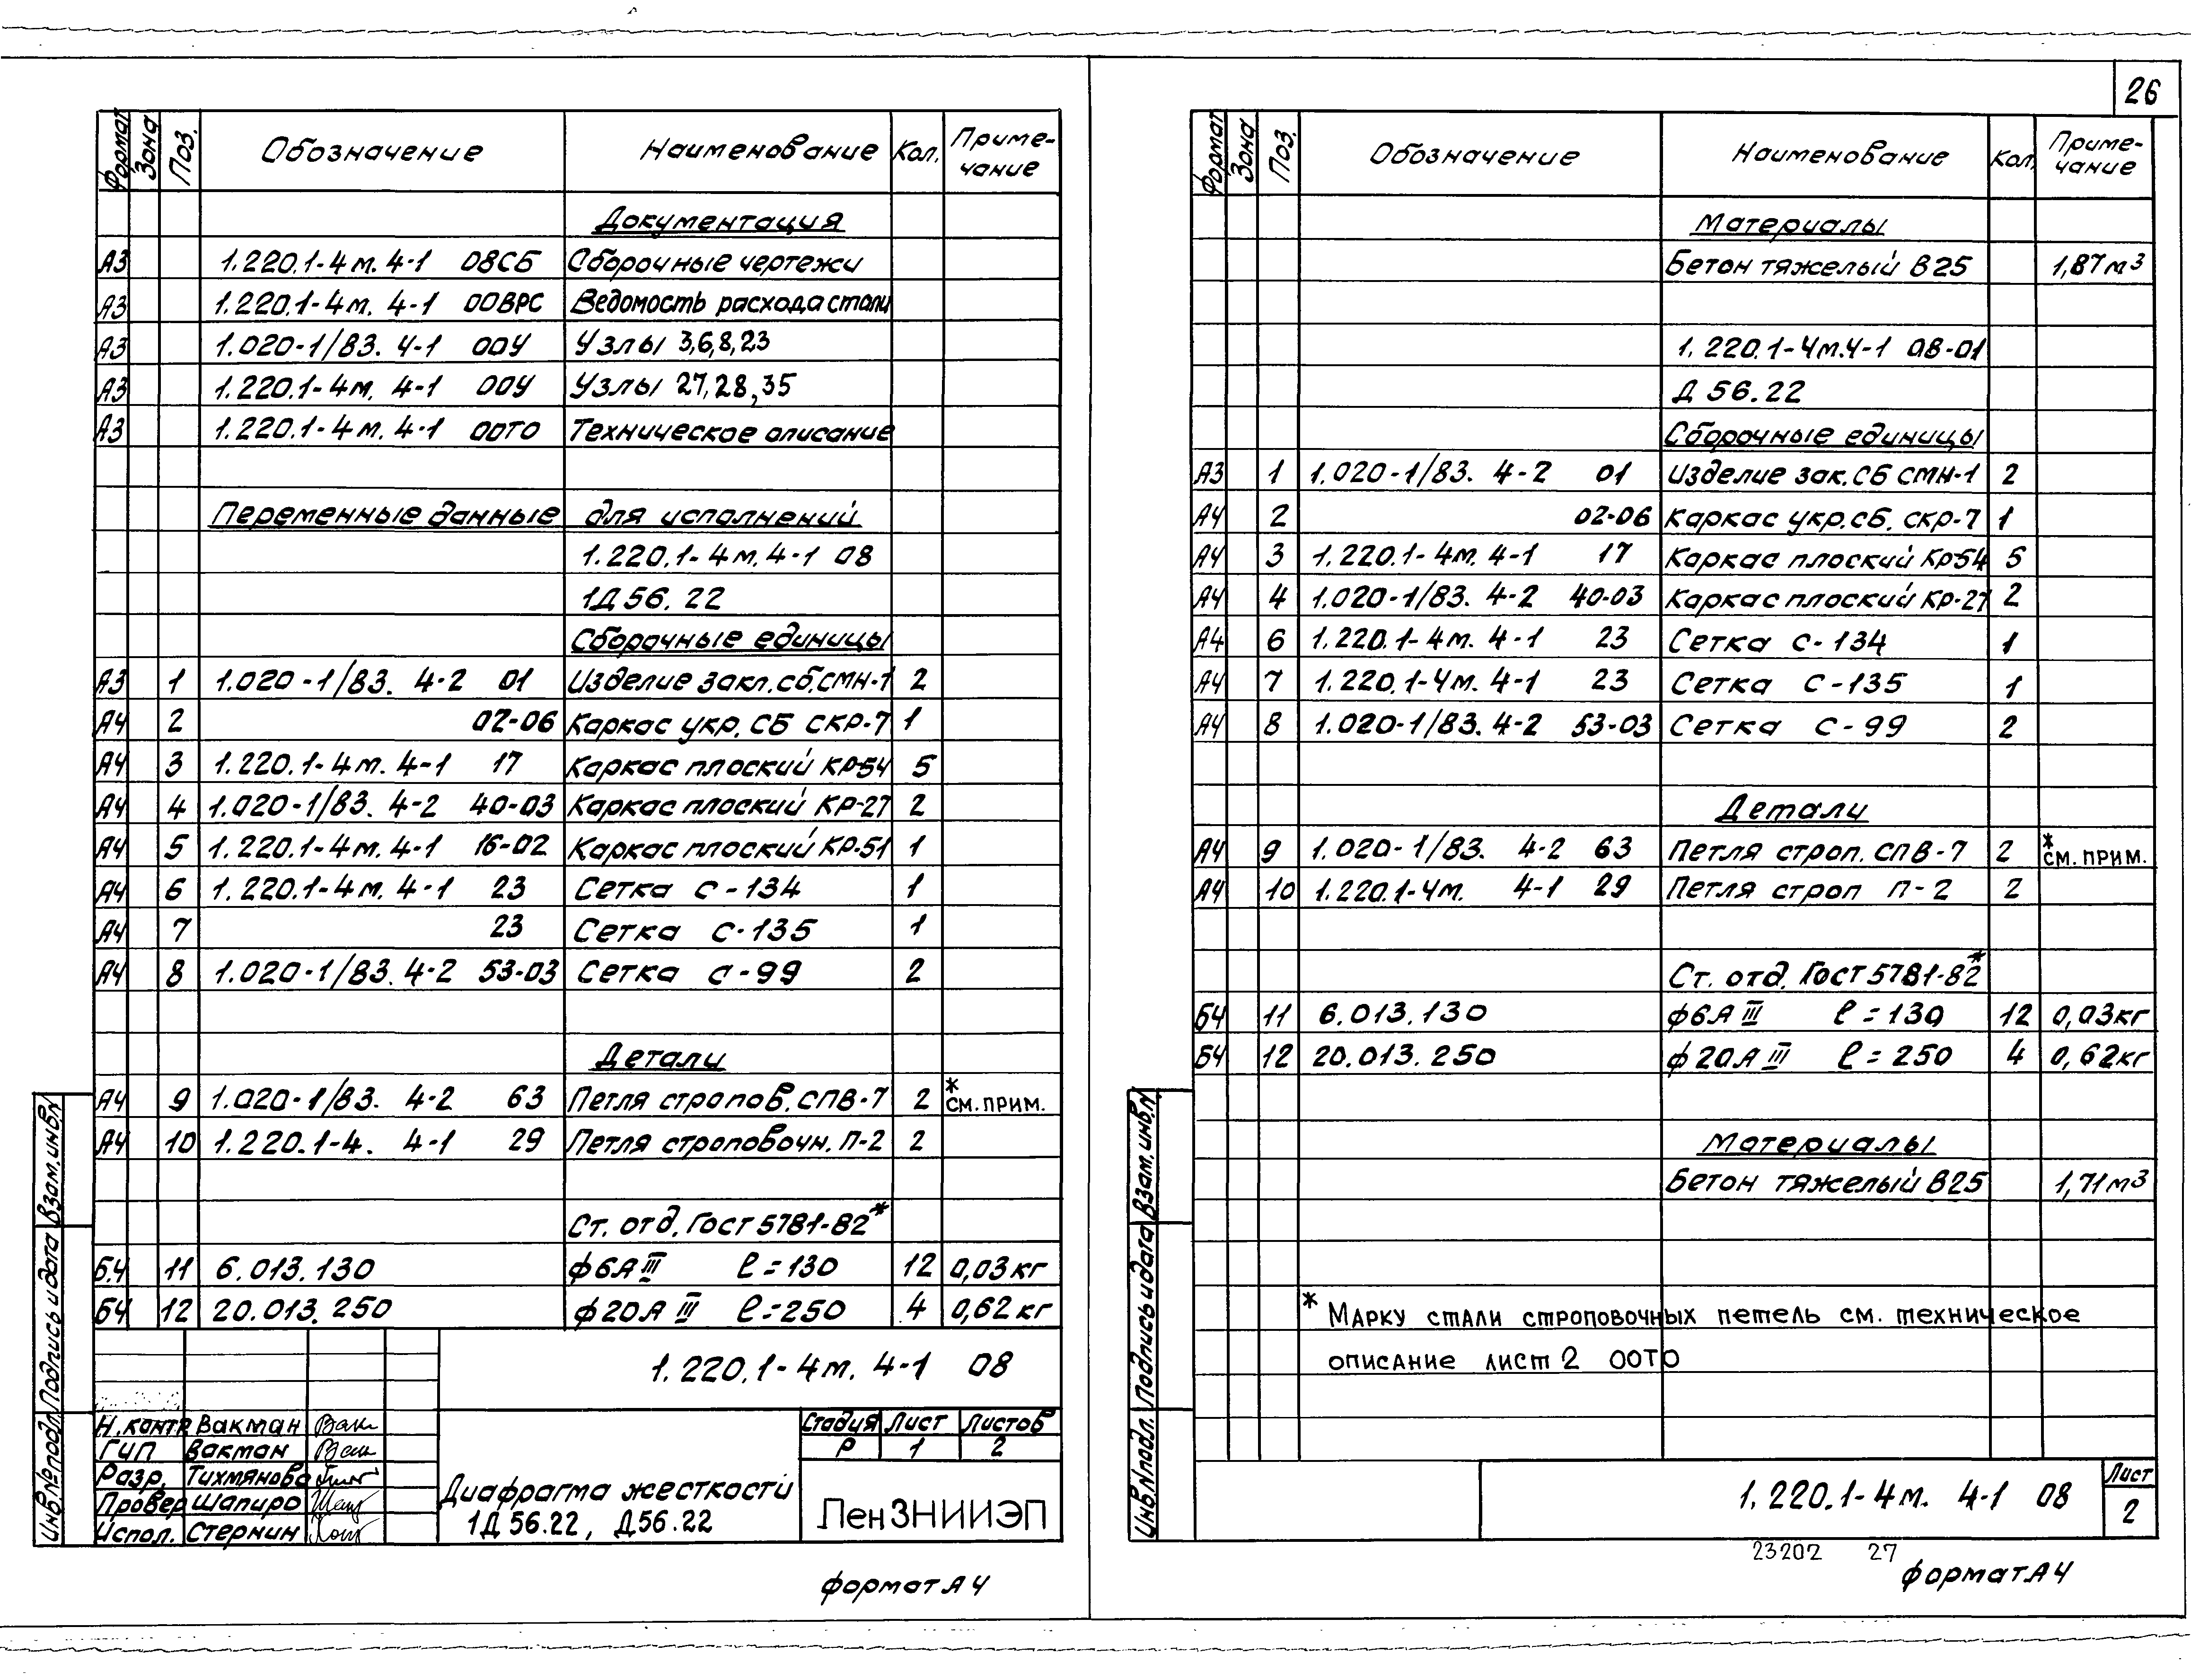 26
Формат Зона Поз. Обозначение Наименование Кол. Приме-чание
Документация
А3 1.220.1-4м. 4-1 08СБ Сборочные чертежи
А3 1.220.1-4м. 4-1 00ВРС Ведомость расхода стали
А3 1.020-1/83. 4-1 00У Узлы 3,6,8,23
А3 1.220.1-4м. 4-1 00У Узлы 27,28,35
А3 1.220.1-4м. 4-1 00ТО Техническое описание
Переменные данные для исполнений
1.220.1-4м. 4-1 08
1Д 56.22
Сборочные единицы
А3 1 1.020-1/83. 4-2 01 Изделие закл.сб.СМН-1 2
А4 2 02-06 Каркас укр. СБ СКР-7 1
А4 3 1.220.1-4м. 4-1 17 Каркас плоский КР-54 5
А4 4 1.020-1/83. 4-2 40-03 Каркас плоский КР-27 2
А4 5 1.220.1-4м. 4-1 16-02 Каркас плоский КР-51 1
А4 6 1.220.1-4м. 4-1 23 Сетка С-134 1
А4 7 23 Сетка С-135 1
А4 8 1.020-1/83. 4-2 53-03 Сетка С-99 2
Детали
А4 9 1.020-1/83. 4-2 63 Петля стропов. СПВ-7 2 * см. прим.
А4 10 1.220.1-4. 4-1 29 Петля строповочн. П-2 2
Ст. отд. Гост 5781-82*
Б4 11 6.013.130 ф6АIII ℓ=130 12 0,03кг
Б4 12 20.013.250 ф20АIII ℓ=250 4 0,62кг
1.220.1-4м. 4-1 08
Н.контр Вакман
ГИП Вакман
Разр. Тихмянова
Провер Шапиро
Испол. Стернин
Диафрагма жесткости
1Д 56.22, Д56.22
Стадия Лист Листов
Р 1 2
ЛенЗНИИЭП
Инв.№подл. Подпись и дата Взам.инв.№
формат А4
Формат Зона Поз. Обозначение Наименование Кол. Приме-чание
Материалы
Бетон тяжелый В25 1,87м³
1.220.1-4м.4-1 08-01
Д 56.22
Сборочные единицы
А3 1 1.020-1/83. 4-2 01 Изделие зак.сб СМН-1 2
А4 2 02-06 Каркас укр.сб. СКР-7 1
А4 3 1.220.1-4м. 4-1 17 Каркас плоский КР-54 5
А4 4 1.020-1/83. 4-2 40-03 Каркас плоский КР-27 2
А4 6 1.220.1-4м. 4-1 23 Сетка С-134 1
А4 7 1.220.1-4м. 4-1 23 Сетка С-135 1
А4 8 1.020-1/83. 4-2 53-03 Сетка С-99 2
Детали
А4 9 1.020-1/83. 4-2 63 Петля строп. СПВ-7 2 * см. прим.
А4 10 1.220.1-4м. 4-1 29 Петля строп П-2 2
Ст. отд. Гост 5781-82*
Б4 11 6.013.130 ф6АIII ℓ=130 12 0,03кг
Б4 12 20.013.250 ф20АIII ℓ=250 4 0,62кг
Материалы
Бетон тяжелый В25 1,71м³
* Марку стали строповочных петель см. техническое
описание лист 2 00ТО
1.220.1-4м. 4-1 08
Лист
2
Инв.№подл. Подпись и дата Взам.инв.№
23202 27
формат А4